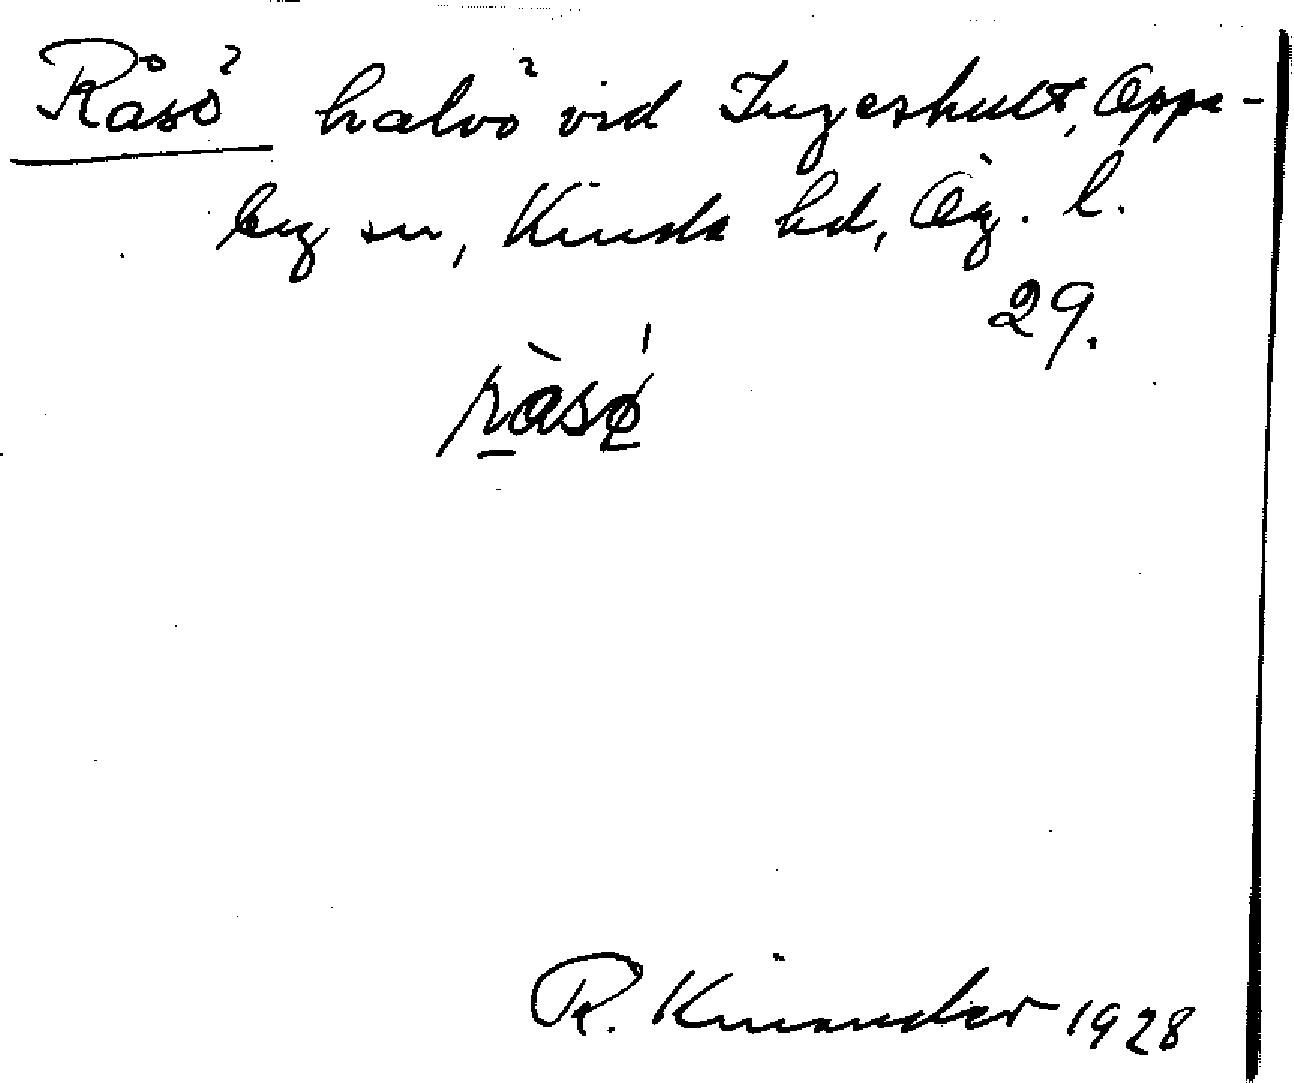 Råsö halvö vid Ingeshult, Oppe-
by sn, Kinda hd, Ög. l.
29.
ràsǿ
R. Kinander 1928